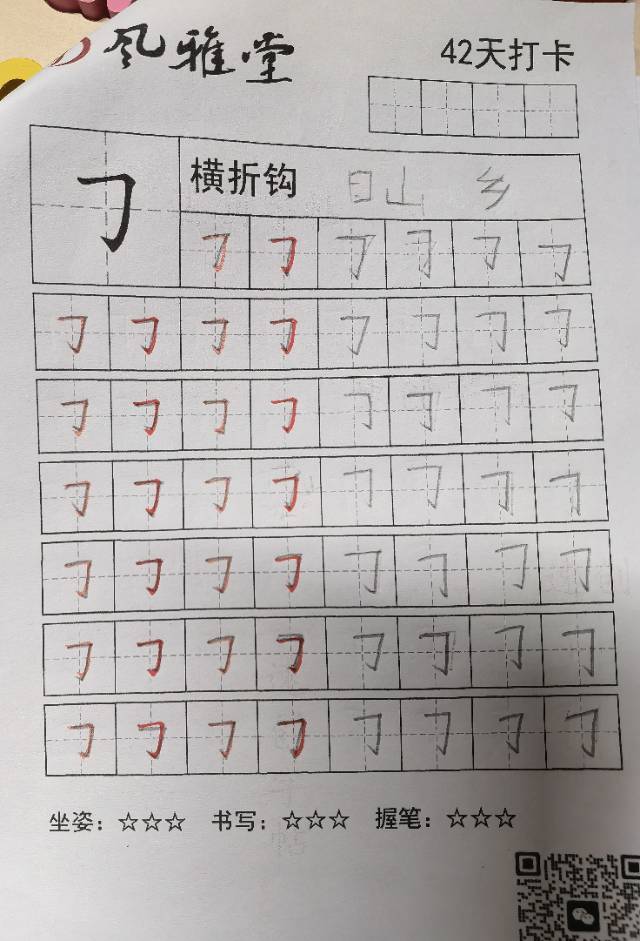 风雅堂
42天打卡
横折钩 日山 乡
坐姿：☆☆☆ 书写：☆☆☆ 握笔：☆☆☆